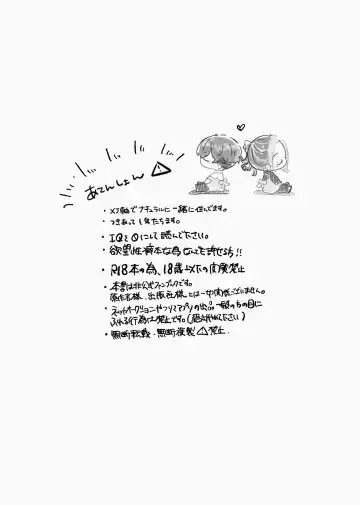 あてんしょん
・×〇軸でナチュラルに一緒に住んでます。
・つきあって1年たちます。
・IQを0にして読んで下さい。
・欲望性癖本な為なんでも許せる方!!
・R18本の為、18歳以下の閲覧禁止
・本書は非公式ファンブックです。
原作者様、出版社様とは一切関係ございません。
・ネットオークションやフリマアプリの出品 一般の方の目に
ふれる行為は禁止です。
・無断転載・無断複製 禁止.